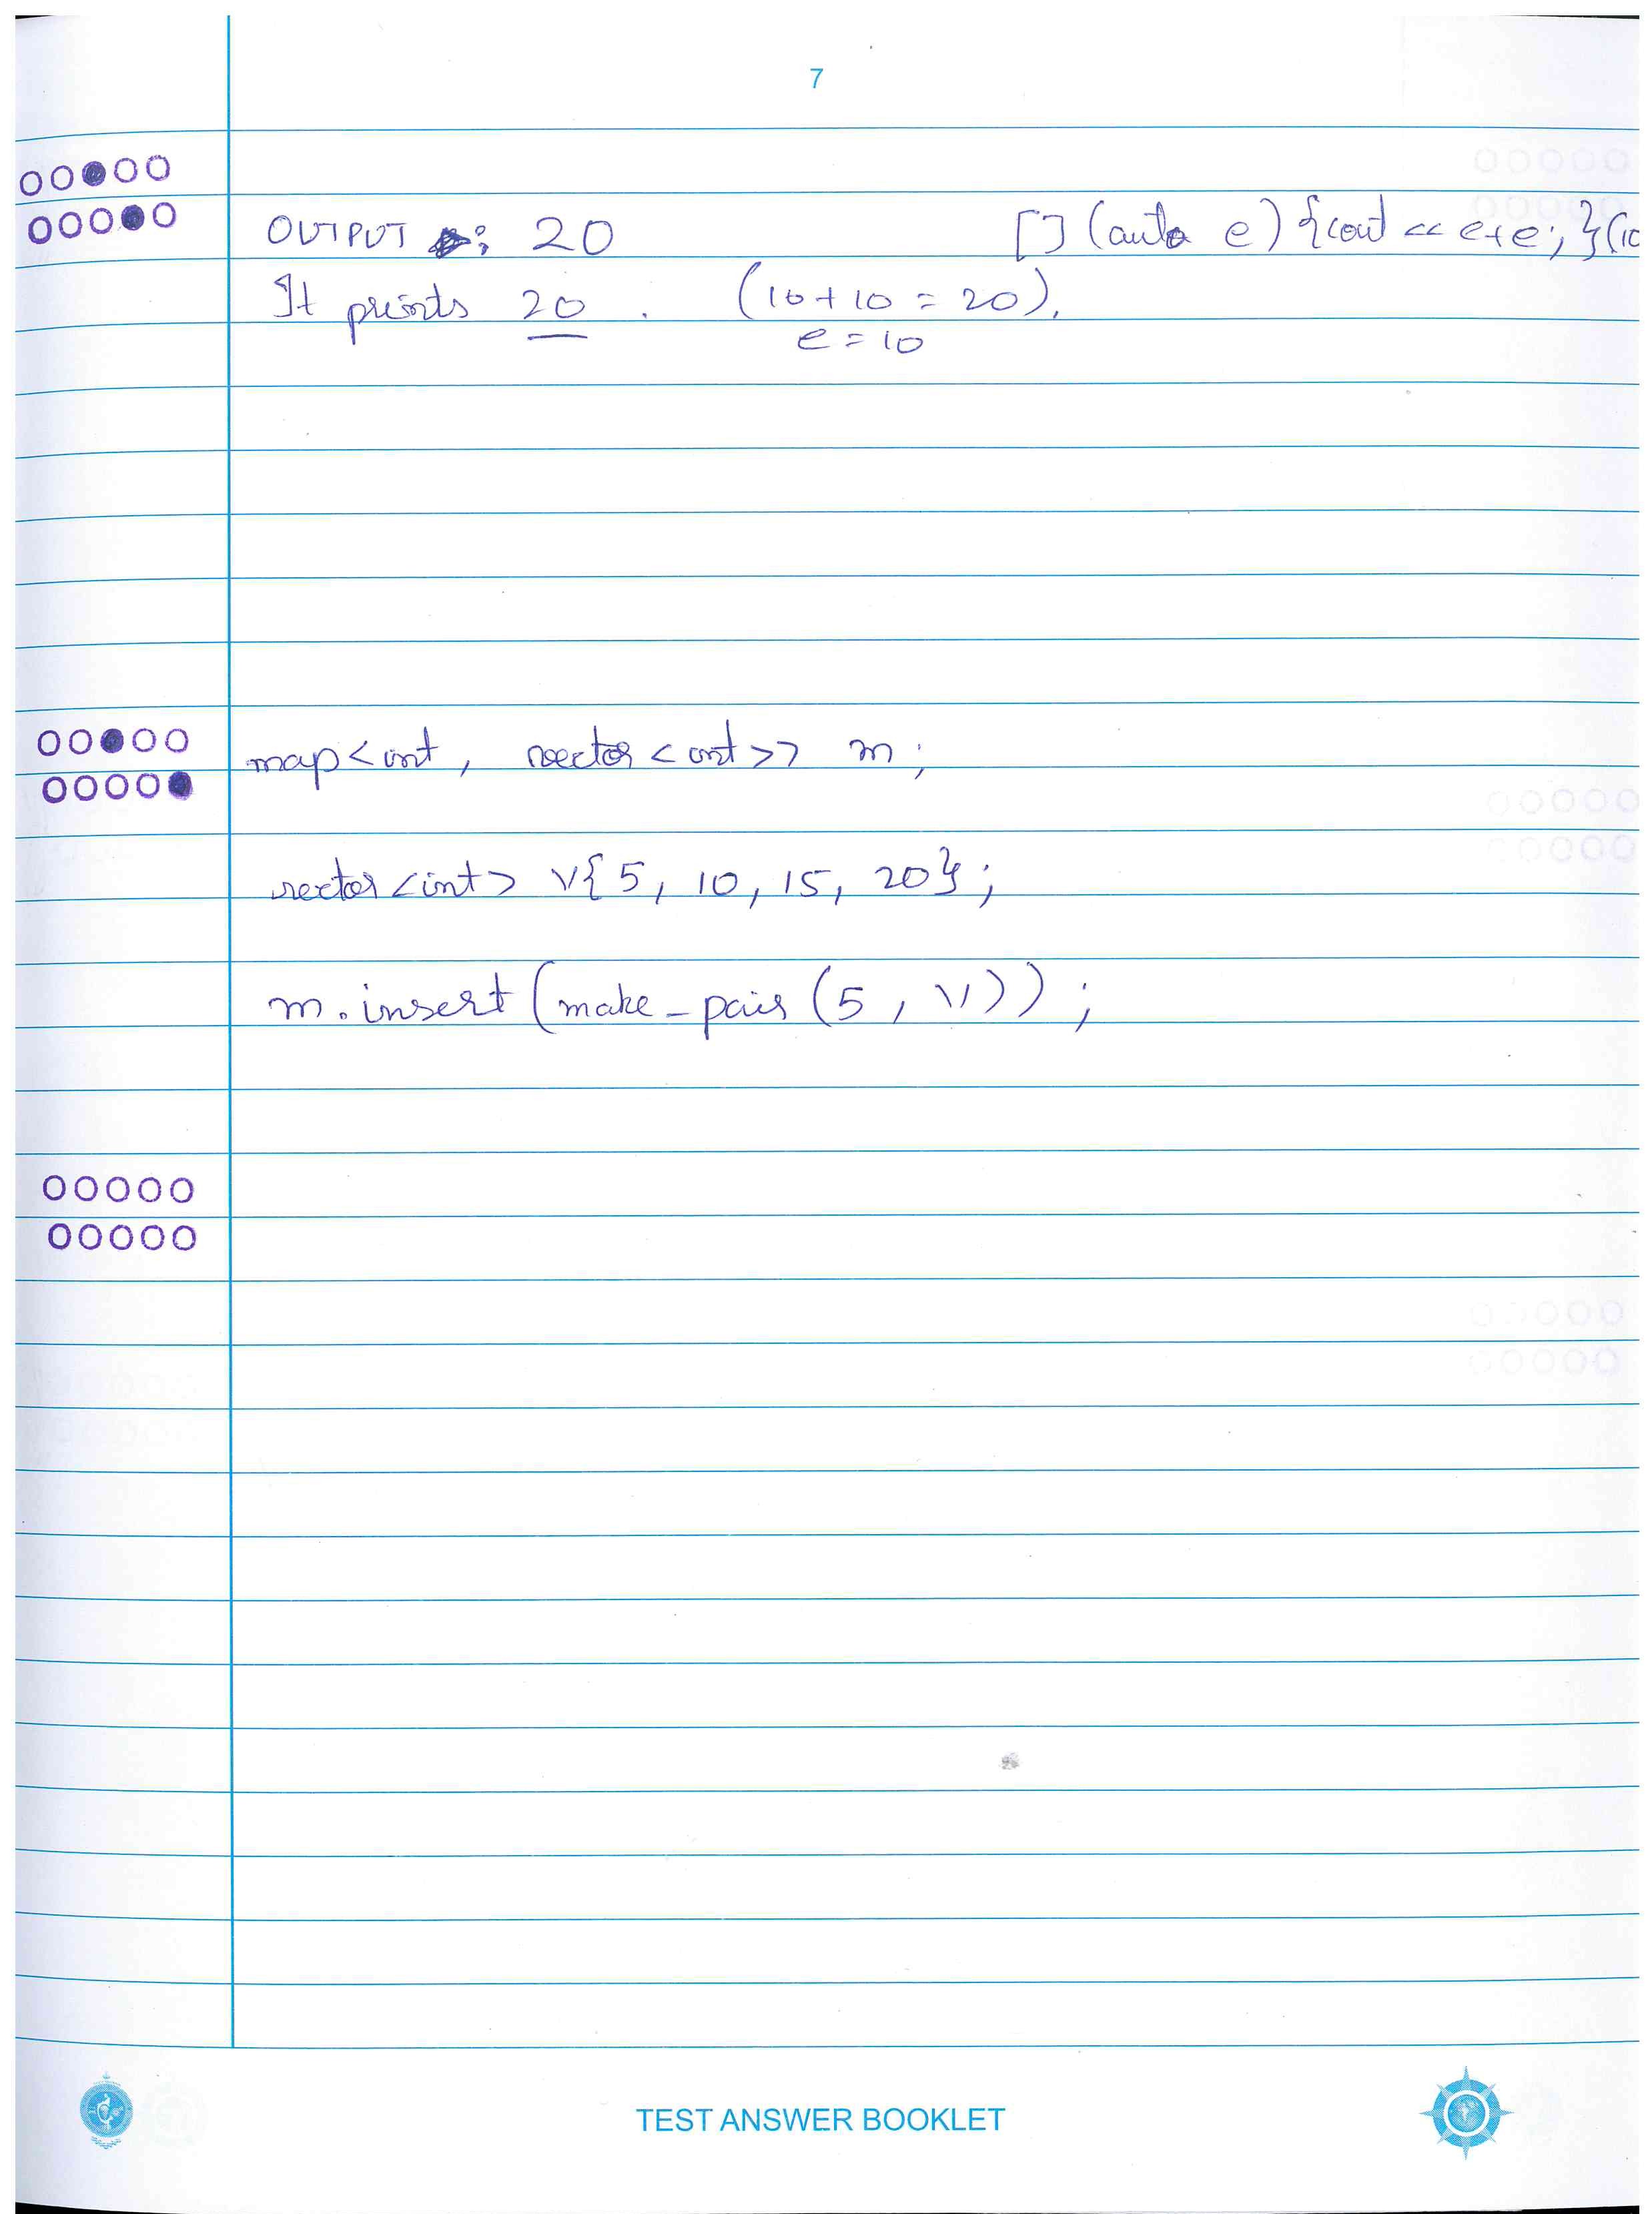 7
OUTPUT : 20 [] (auto e) {cout << e+e; }(10
It prints 20 . (10+10 = 20).
e = 10
map<int, vector<int>> m;
vector<int> v{5, 10, 15, 20};
m.insert(make_pair(5, v));
TEST ANSWER BOOKLET